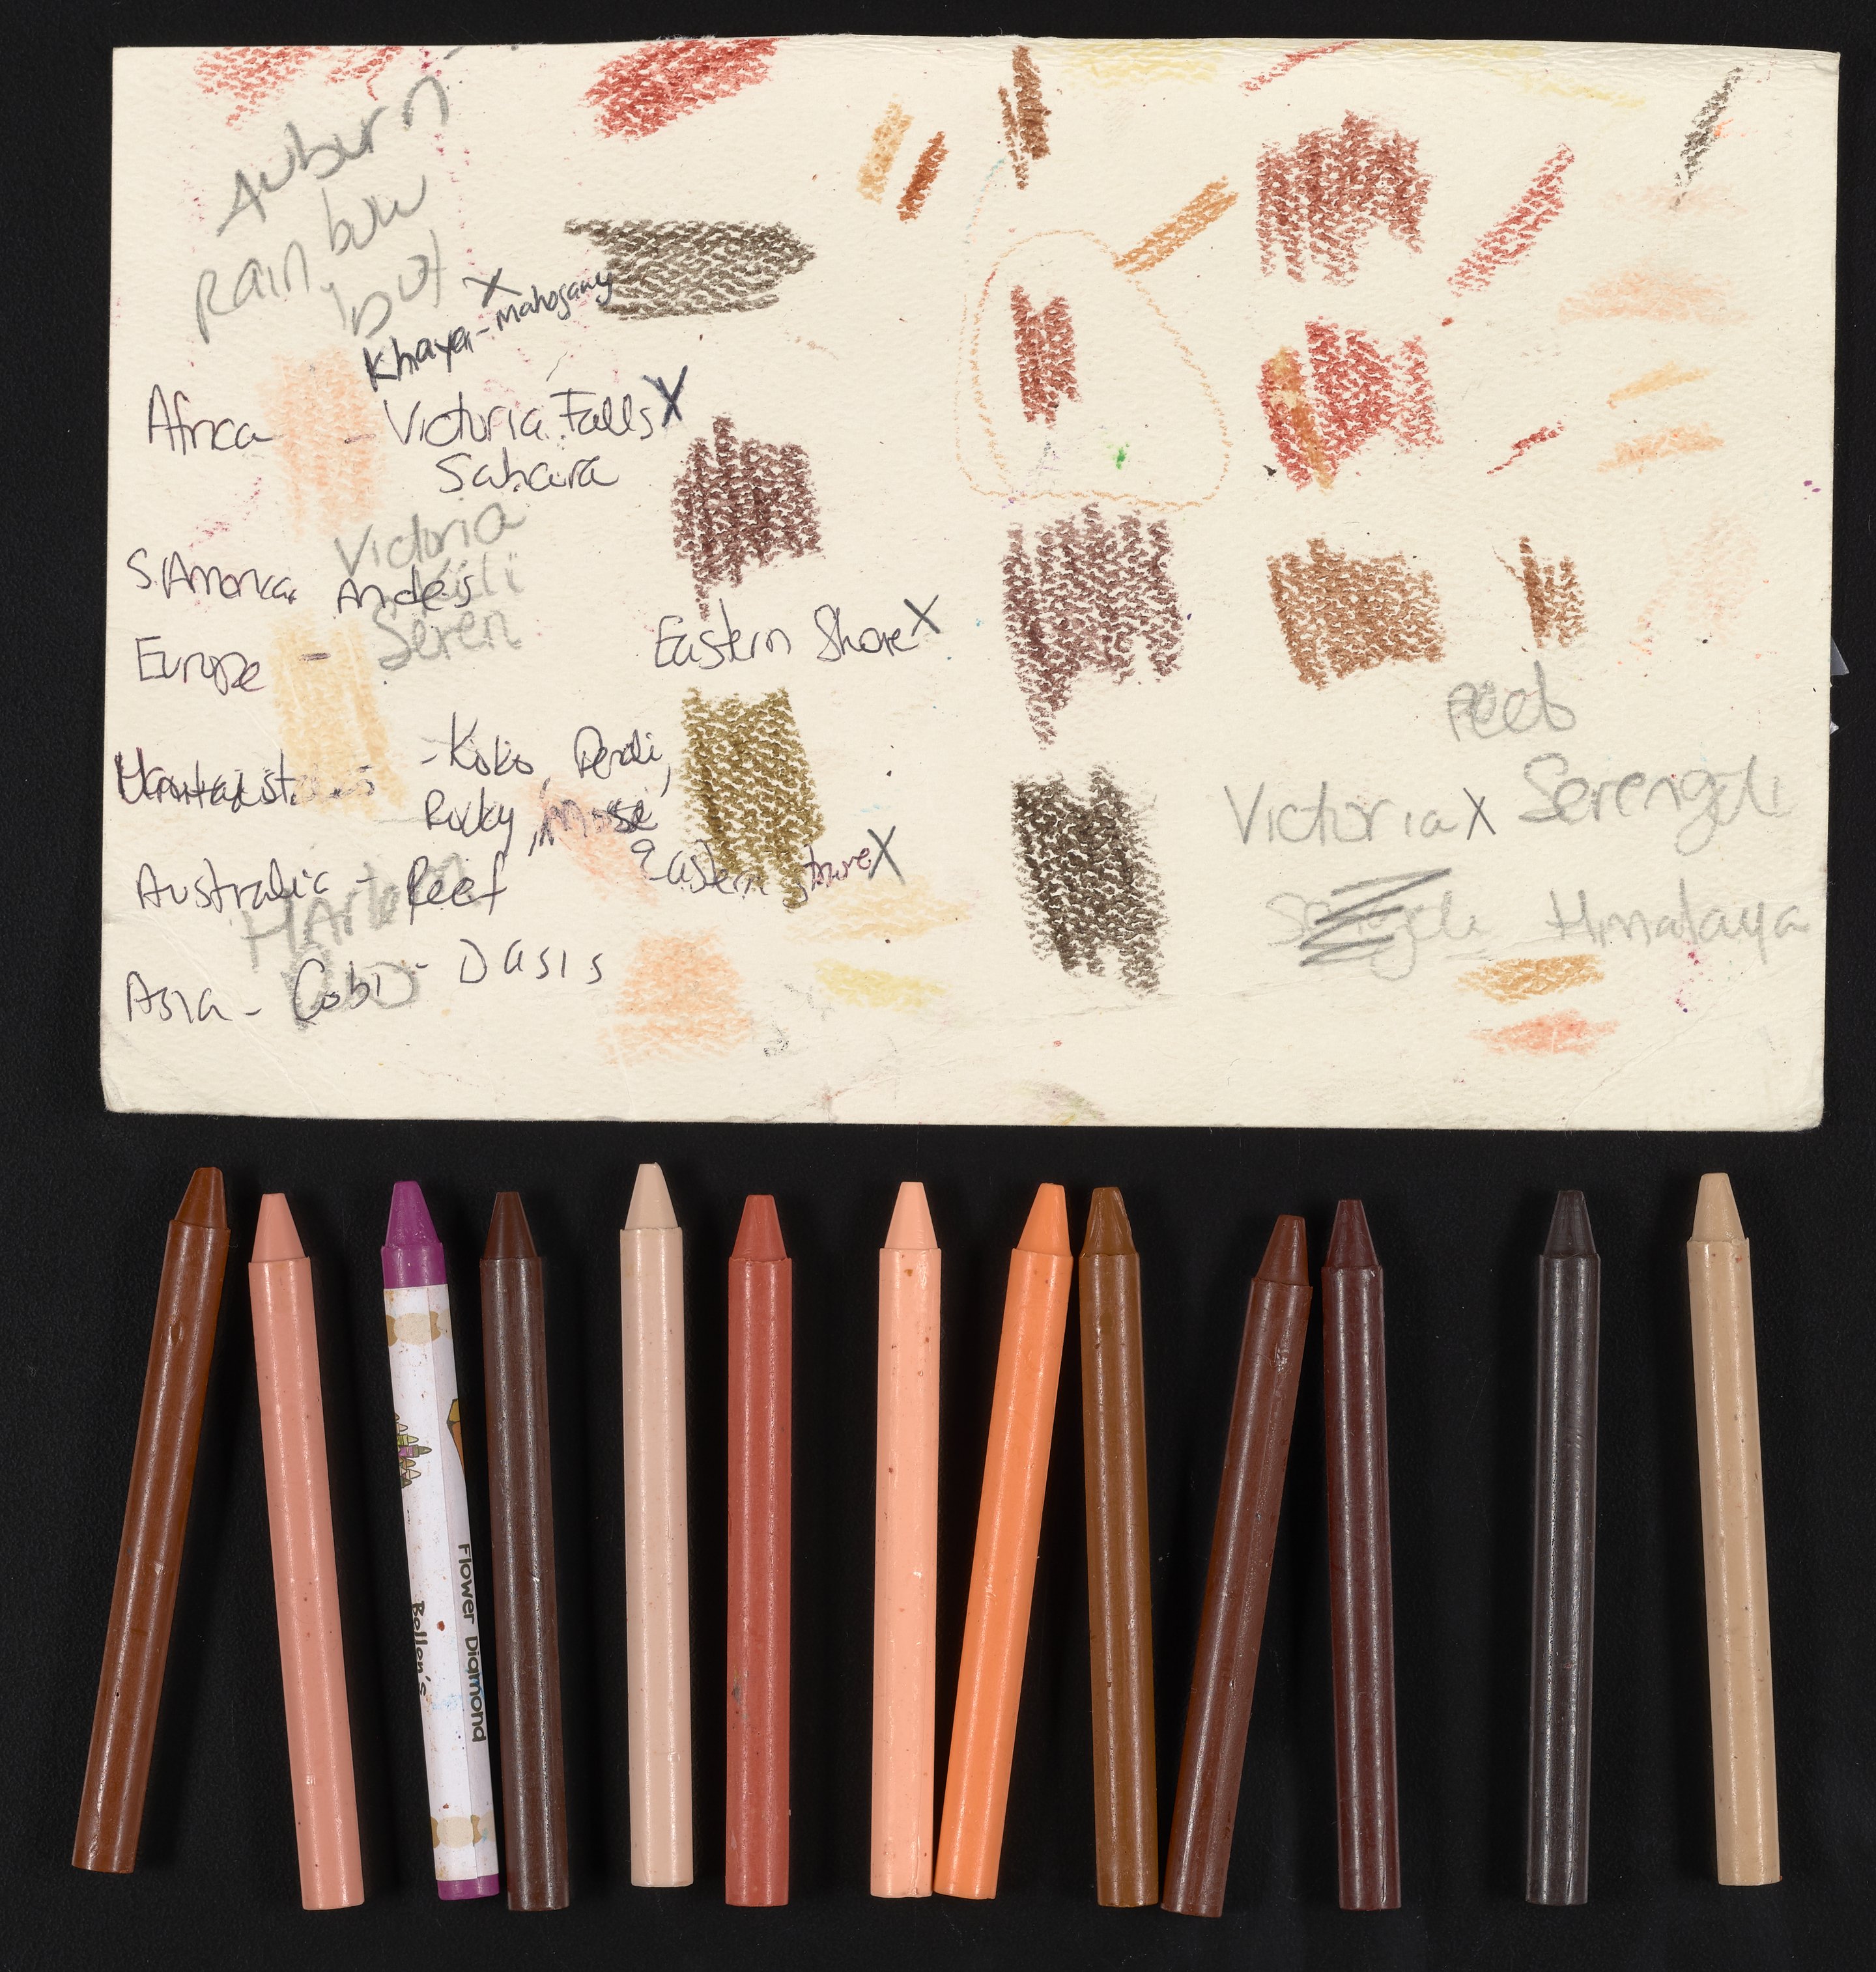 Auburn
Rainbow
but
X
Khaya - Mahogany
Africa - Victoria Falls X
Sahara
Victoria
S. America Andes
Seren
Europe -
Eastern Shore X
- Koko, 
Rocky,
Reeb
Victoria X Serengeti
Eastern Shore X
Australia - Reef
Harlem
Himalaya
Asia - Gobi - Oasis
Flower Diamond
Bellen's